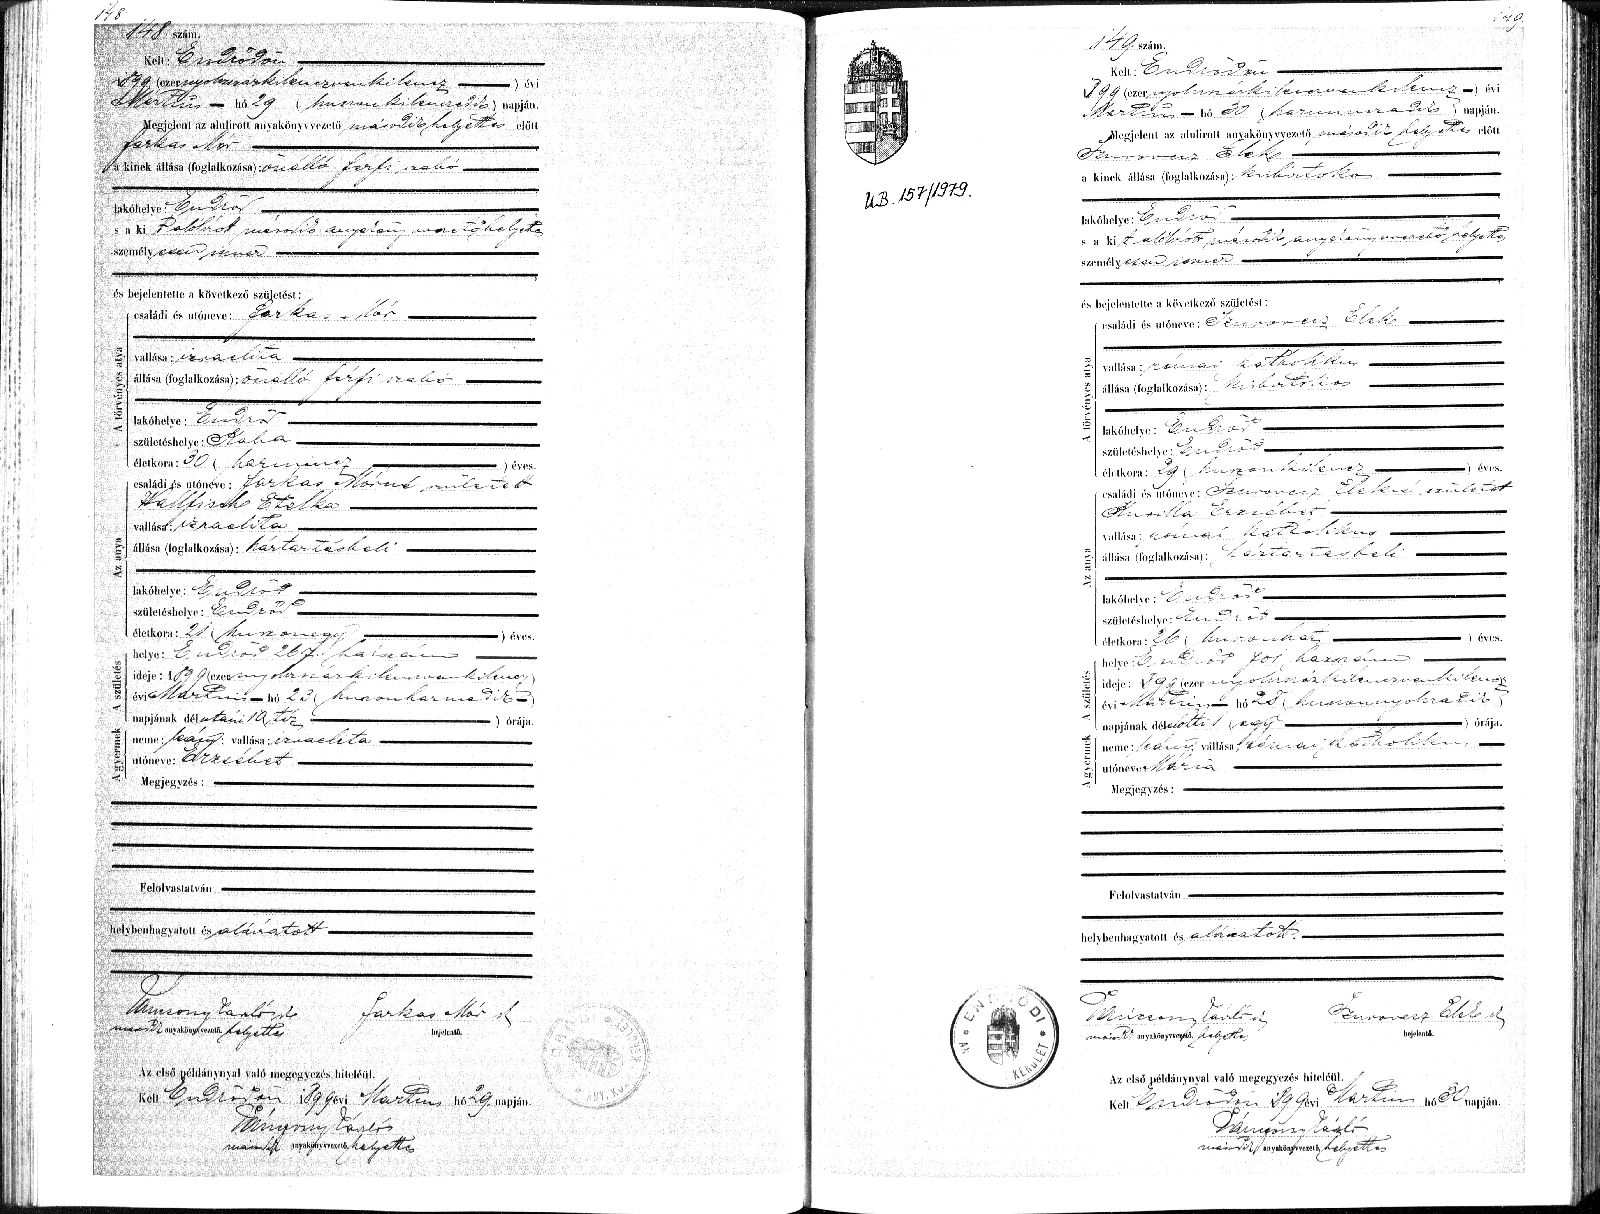 148
148 szám.
Kelt: Endrődön
1899 (ezernyolczszázkilenczvenkilencz) évi
Martius hó 29 (huszonkilenczedik) napján.
Megjelent az alulirott anyakönyvvezető másodikhelyettes előtt
Farkas Mór
a kinek állása (foglalkozása): önálló férfi szabó
lakóhelye: Endrőd
s a ki alulírott második anyakönyvvezetőhelyettes
személyesen ismer
és bejelentette a következő születést:
A törvényes atya
családi és utóneve: Farkas Mór
vallása: izraelita
állása (foglalkozása): önálló férfi szabó
lakóhelye: Endrőd
születéshelye: Kaba
életkora: 30 (harmincz) éves.
Az anya
családi és utóneve: Farkas Mórné született
Wallfisch Etelka
vallása: izraelita
állása (foglalkozása): háztartásbeli
lakóhelye: Endrőd
születéshelye: Endrőd
életkora: 21 (huszonegy) éves.
A születés
helye: Endrőd 267 házszám
ideje: 1899 (ezernyolczszázkilenczvenkilencz)
évi Martius hó 23 (huszonharmadik)
napjának délutáni 10 tíz ) órája.
A gyermek
neme: leány; vallása: izraelita
utóneve: Erzsébet
Megjegyzés:
Felolvastatván
helybenhagyatott és aláíratott
László sk Farkas Mór sk
második anyakönyvvezető helyettes bejelentő.
Az első példánynyal való megegyezés hiteléül.
Kelt Endrődön 1899 évi Martius hó 29 napján.
László
második anyakönyvvezető helyettes
149
149 szám.
Kelt: Endrődön
1899 (ezernyolczszázkilenczvenkilencz) évi
Martius hó 30 (harminczadik) napján.
Megjelent az alulirott anyakönyvvezető második helyettes előtt
Szurovecz Elek
a kinek állása (foglalkozása): kisbirtokos
lakóhelye: Endrőd
s a ki alulírott második anyakönyvvezető helyettes
személyesen ismer
és bejelentette a következő születést:
A törvényes atya
családi és utóneve: Szurovecz Elek
vallása: római katholikus
állása (foglalkozása): kisbirtokos
lakóhelye: Endrőd
születéshelye: Endrőd
életkora: 29 (huszonkilencz) éves.
Az anya
családi és utóneve: Szurovecz Elekné született
Erzsébet
vallása: római katholikus
állása (foglalkozása): háztartásbeli
lakóhelye: Endrőd
születéshelye: Endrőd
életkora: 26 (huszonhat) éves.
A születés
helye: Endrőd 701 házszám
ideje: 1899 (ezernyolczszázkilenczvenkilencz
évi Martius hó 28 (huszonnyolczadik)
napjának délelőtti 1 (egy ) órája.
A gyermek
neme: leány; vallása: római katholikus
utóneve: Mária
Megjegyzés:
Felolvastatván
helybenhagyatott és aláíratott.
László sk Szurovecz Elek sk
második anyakönyvvezető helyettes bejelentő.
Az első példánynyal való megegyezés hiteléül.
Kelt Endrődön 1899 évi Martius hó 30 napján.
László
második anyakönyvvezető helyettes
U.B. 157/1979.
ENDRŐDI
KERÜLET